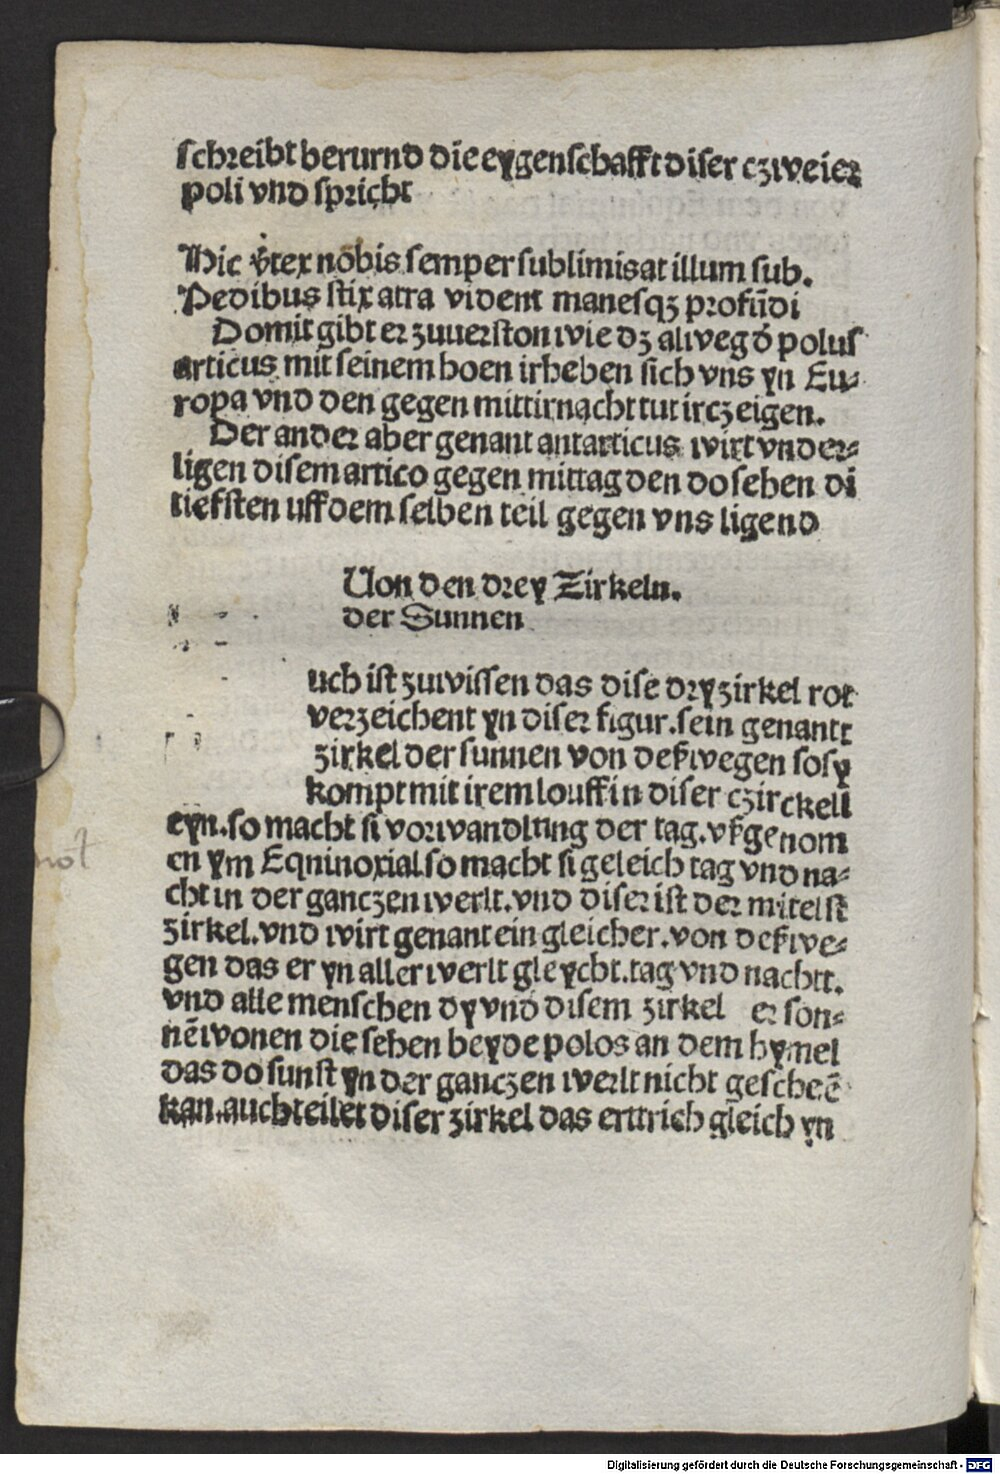 schreibt berurnd die eygenschafft diser czweier
poli vnd spricht
Hic v̕tex nobis semper sublimis at illum sub.
Pedibus stix atra vident manesqꝫ profūdi
Domit gibt er zuuerston wie dꝫ alweg d̕ polus
articus mit seinem hoen irheben sich vns yn Eu-
ropa vnd den gegen mittirnacht tut irczeigen.
Der ander aber genant antarticus wirt vnder-
ligen disem artico gegen mittag den do sehen di
tiefsten uff dem selben teil gegen vns ligend
Uon den drey Zirkeln.
der Sunnen
uch ist zuwissen das dise dry zirkel rot
verzeichent yn diser figur. sein genantt
zirkel der sunnen von deßwegen so sy
kompt mit irem louff in diser czirckell
eyn. so macht si vorwandlung der tag. vßgenom
en ym Eqninoxial so macht si geleich tag vnd na-
cht in der ganczen werlt. vnd diser ist der mitelst
zirkel. vnd wirt genant ein gleicher. von deßwe-
gen das er yn aller werlt gleycht. tag vnd nachtt.
vnd alle menschen dy vnd disem zirkel er son-
nē wonen die sehen beyde polos an dem hymel
das do sunst yn der ganczen werlt nicht gescheē
kan. auch teilet diser zirkel das erttrich gleich yn
not
Digitalisierung gefördert durch die Deutsche Forschungsgemeinschaft - DFG